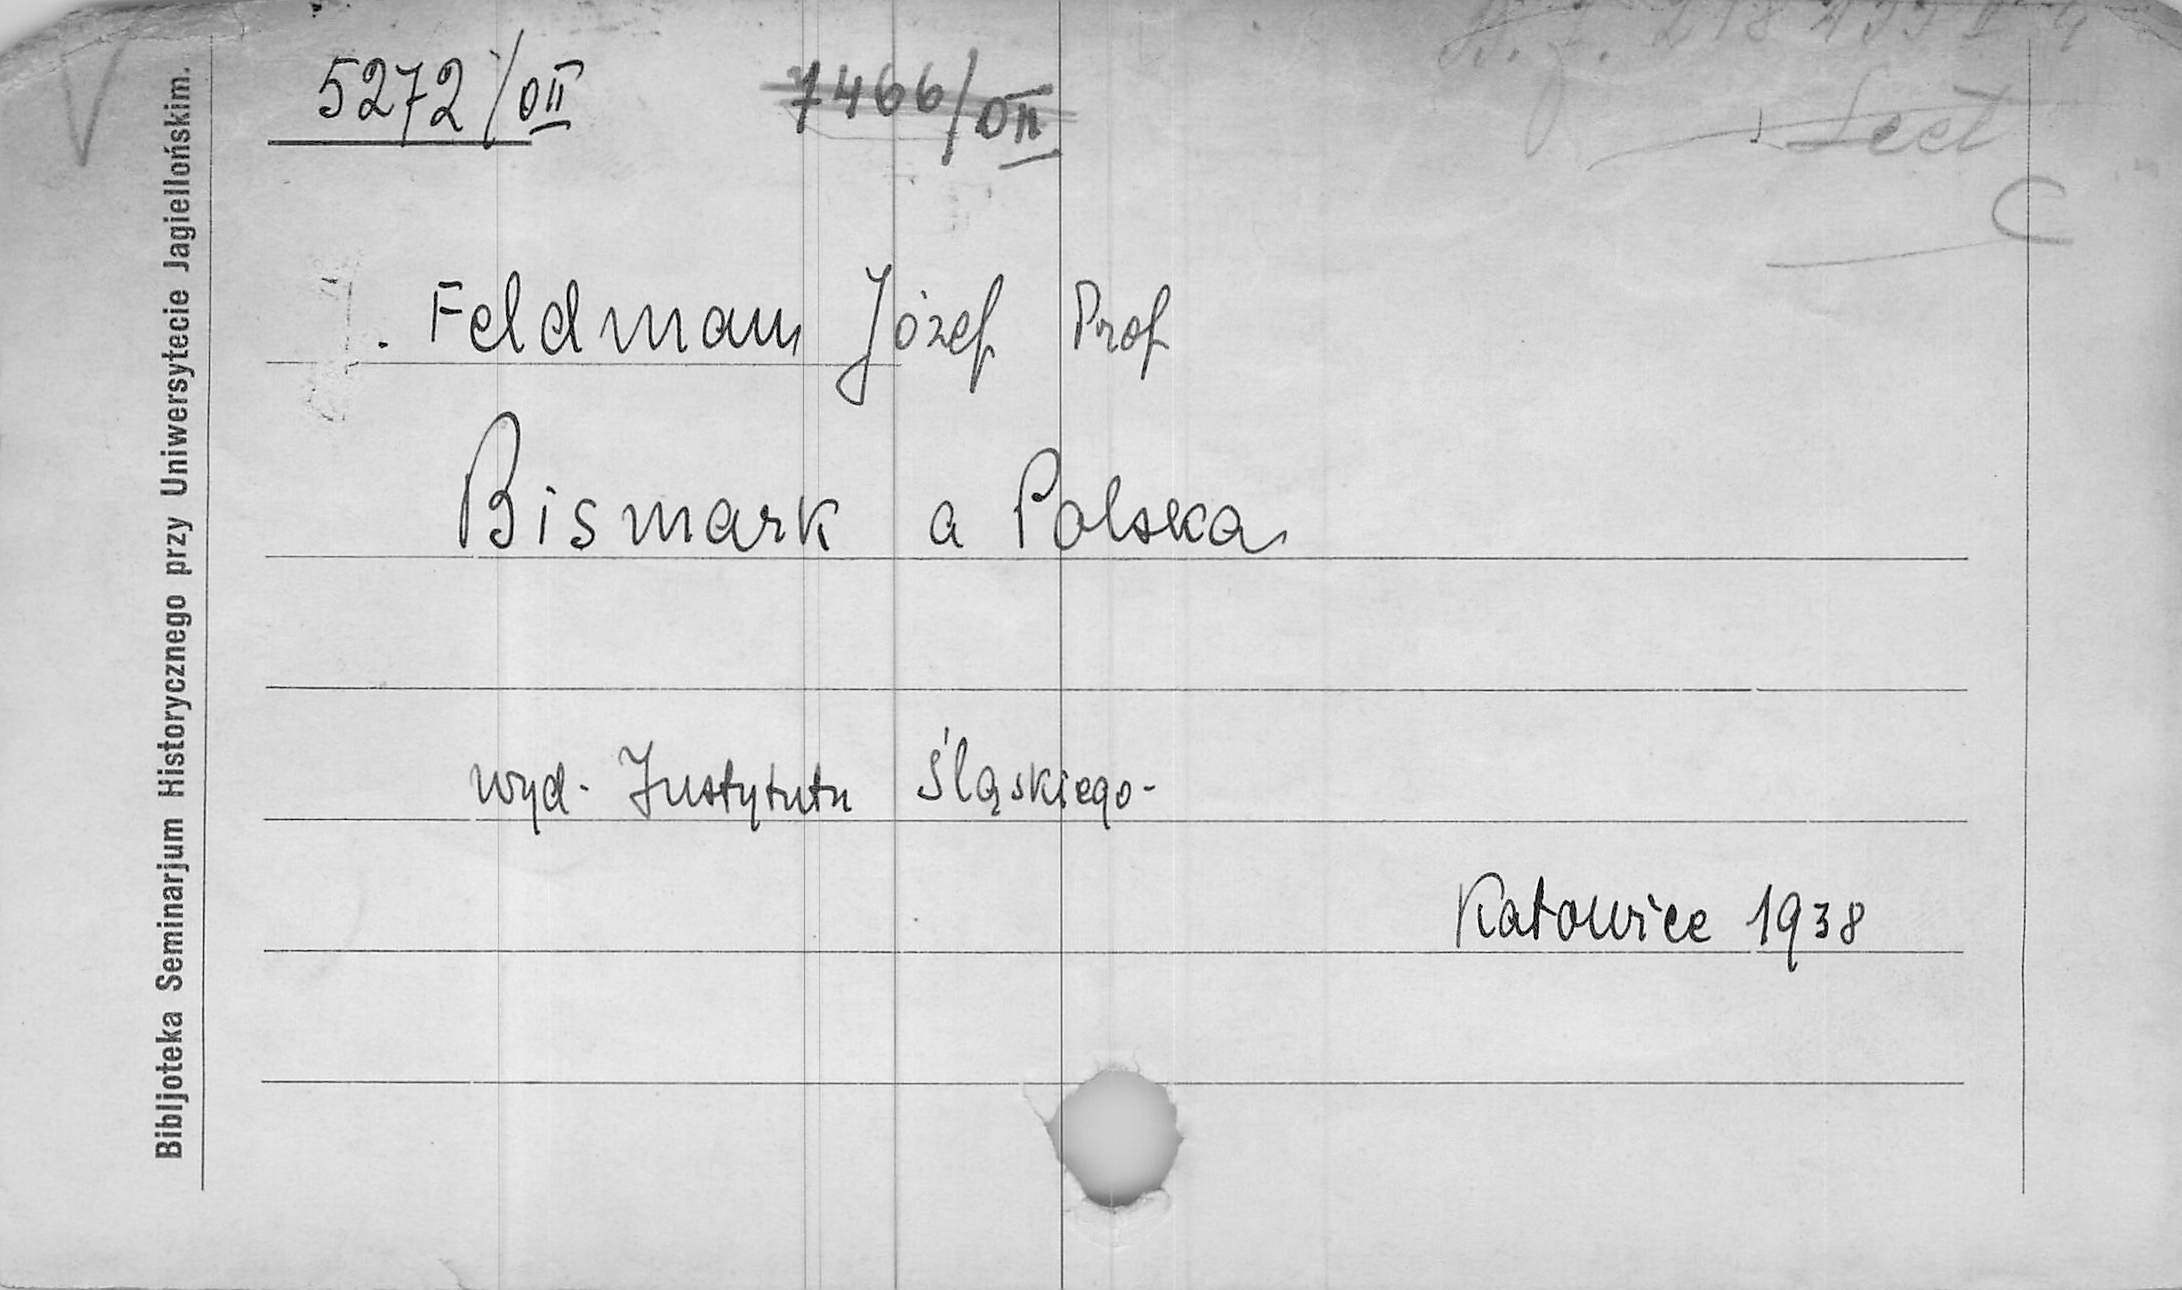 5272/OII 7466/OII
C
Feldman Józef Prof
Bismark a Polska
wyd. Instytutu Śląskiego-
Katowice 1938
Bibljoteka Seminarjum Historycznego przy Uniwersytecie Jagiellońskim.